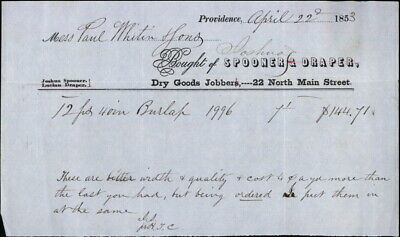 Providence, April 22d 1853
Mess Paul Whitin & Sons
Joshua
Bought of SPOONER & DRAPER,
Joshua Spooner,
Lucian Draper.
Dry Goods Jobbers,—22 North Main Street.
12 ps 40 in Burlap 1996 7¼ $144.71
These are better width & quality & cost ¼ c a yd more than
the last you had, but being ordered put them in
at the same